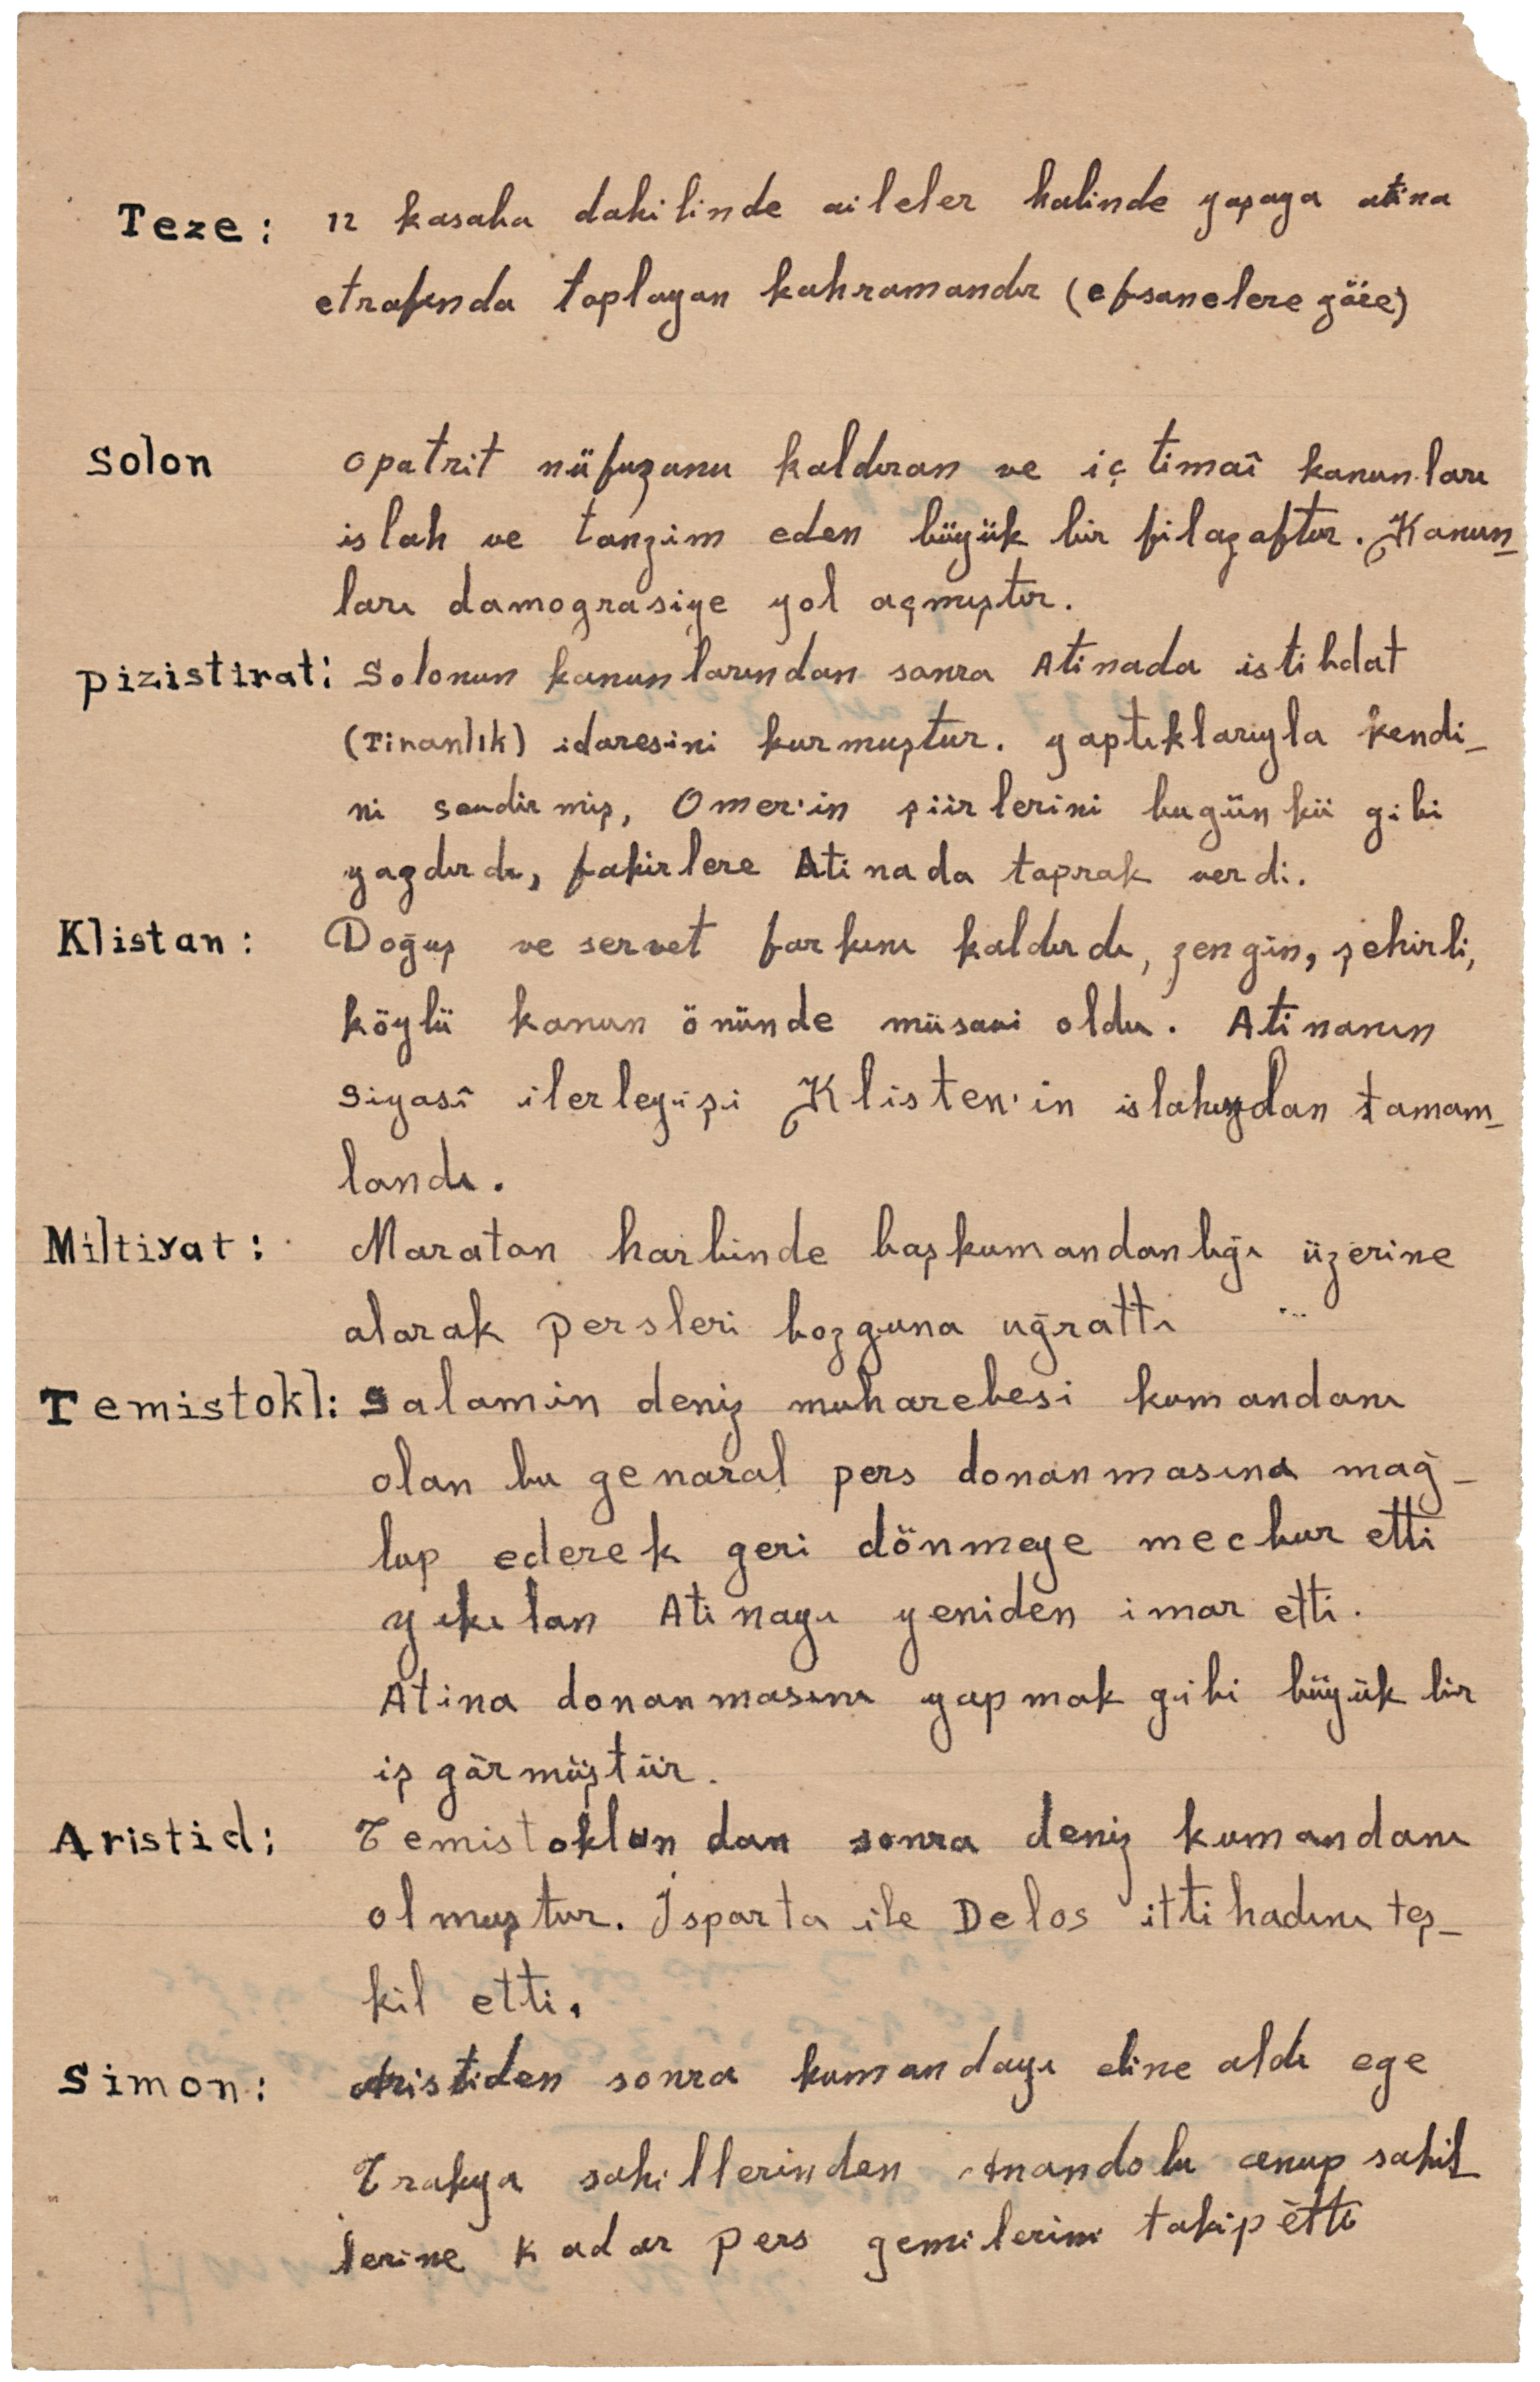 Teze: 12 kasaba dahilinde aileler halinde yaşaya atina
etrafında toplayan kahramandır (efsanelere göre)
Solon opatrit nüfuzunu kaldıran ve içtimaî kanunları
islah ve tanzim eden büyük bir filazaftır. Kanun_
ları damograsiye yol açmıştır.
pizistirat: Solonun kanunlarından sonra Atinada istibdat
(Tiranlık) idaresini kurmuştur. yaptıklarıyla kendi_
ni sevdirmiş, Omer'in şiirlerini bugünkü gibi
yazdırdı, fakirlere Atinada toprak verdi.
Klistan: Doğuş ve servet farkını kaldırdı, zengin, şehirli,
köylü kanun önünde müsavi oldu. Atinanın
siyasî ilerleyişi Klisten'in islahıydan tamam_
landı.
Miltiyat: Maraton harbinde başkumandanlığı üzerine
alarak persleri bozguna uğrattı
Temistokl: Salamin deniz muharebesi kumandanı
olan bu genaral pers donanmasına mağ_
lup ederek geri dönmeye mecbur etti
yıkılan Atinayı yeniden imar etti.
Atina donanmasını yapmak gibi büyük bir
iş görmüştür.
Aristid: Temistoklun dan sonra deniz kumandanı
olmuştur. İsparta ile Delos ittihadını teş_
kil etti.
Simon: Aristiden sonra kumandayı eline aldı ege
Trakya sahillerinden Anandolu cenup sahil_
lerine kadar pers gemilerini takip etti